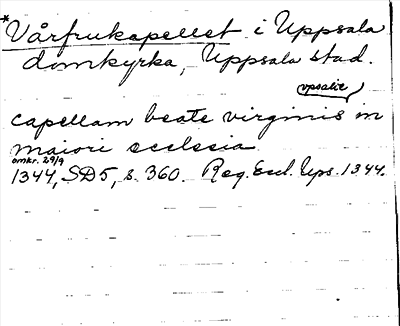 *Vårfrukapellet i Uppsala
domkyrka, Uppsala stad.
vpsalie
capellam beate virginis in
maiori ecclesia
omkr. 29/9
1344, SD5, s. 360. Reg. Eccl. Ups. 1344.